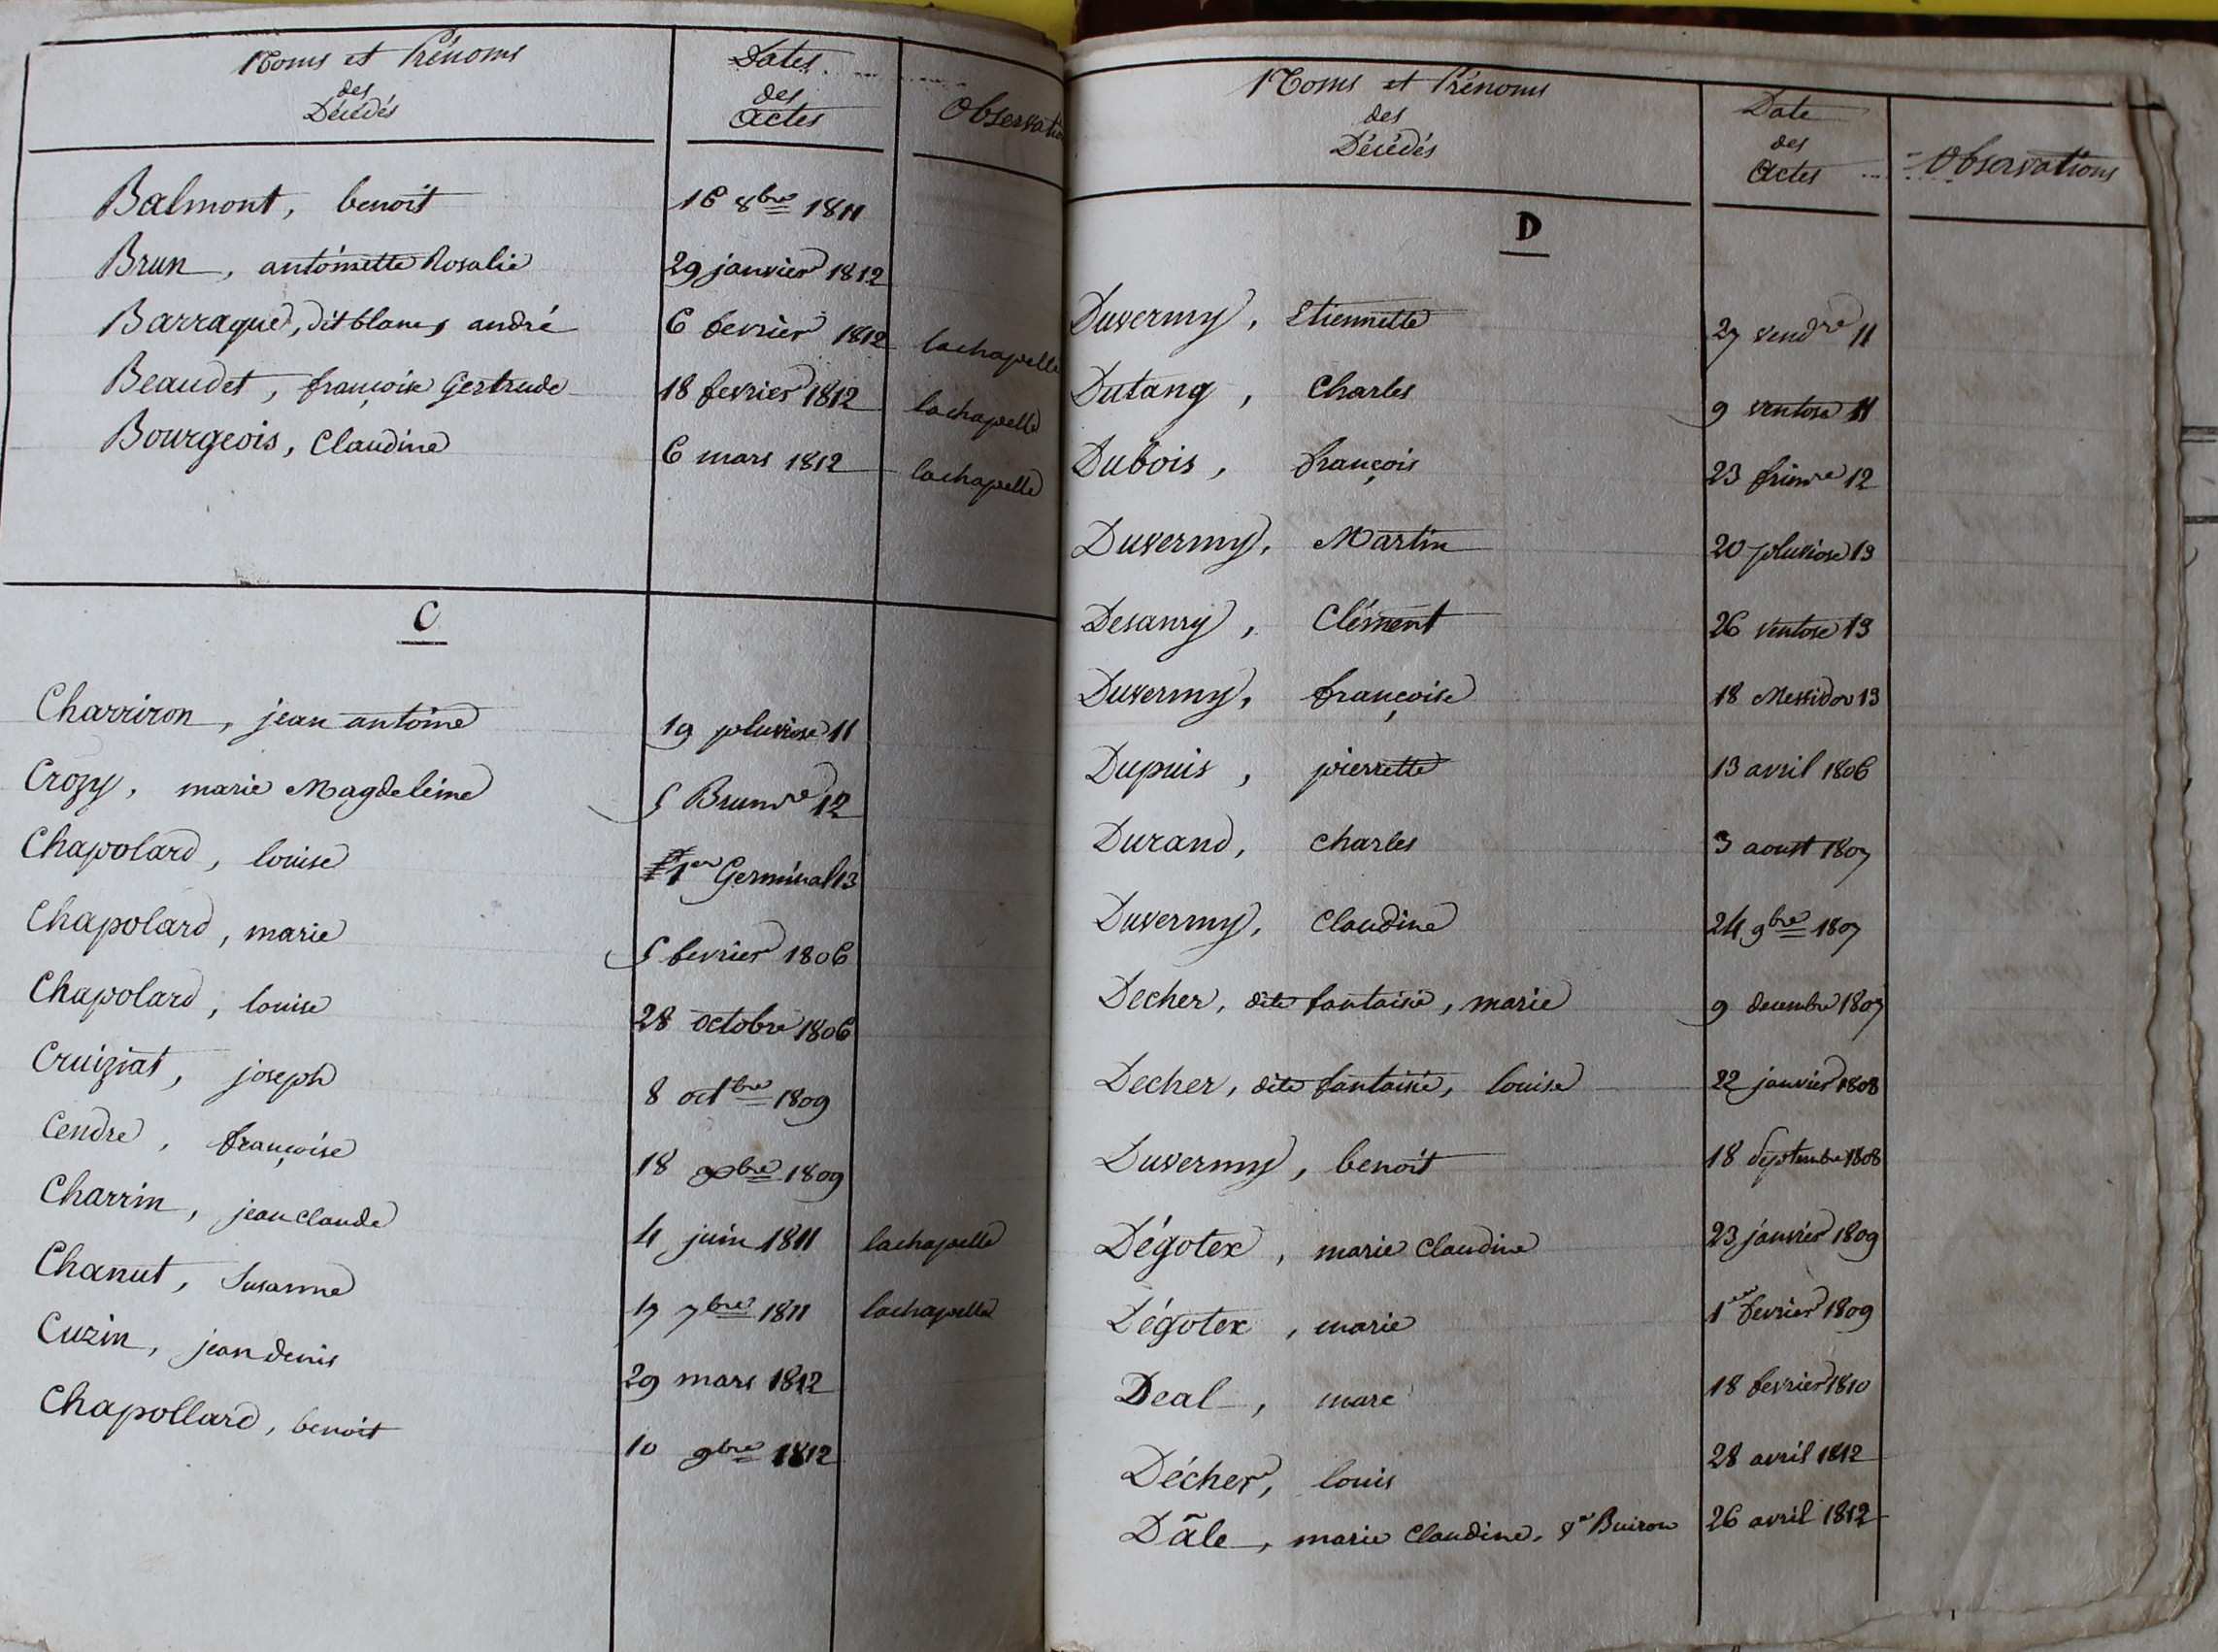 Noms et Prénoms
des
Décédés
Dates
des
Actes
Observati
Balmont, benoit 16 8bre 1811
Brun, antoinette Rosalie 29 janvier 1812
Barraque, dit blanc, andré 6 fevrier 1812 lachapelle
Beaudet, françoise Gertrude 18 fevrier 1812 lachapelle
Bourgeois, Claudine 6 mars 1812 lachapelle
C
Charriron, jean antoine 19 pluviose 11
Crozy, marie Magdeleine 5 Brumre 12
Chapolard, louise 1er Germinal 13
Chapolard, marie 5 fevrier 1806
Chapolard, louise 28 octobre 1806
Cruiziat, joseph 8 octbre 1809
Cendre, françoise 18 bre 1809
Charrin, jean claude 4 juin 1811 lachapelle
Chanut, Susanne 17 7bre 1811 lachapelle
Cuzin, jean denis 29 mars 1812
Chapollard, benoit 10 9bre 1812
Noms et Prénoms
des
Décédés
Date
des
Actes
Observations
D
Duvermy, Etiennette 27 vendre 11
Dutang, Charles 9 ventose 11
Dubois, françois 23 frimre 12
Duvermy, Martin 20 pluviose 13
Desanry, Clément 26 ventose 13
Duvermy, françoise 18 Messidor 13
Dupuis, pierrette 13 avril 1806
Durand, Charles 3 aoust 1807
Duvermy, Claudine 24 9bre 1807
Decher, dite fantaisie, marie 9 decembre 1807
Decher, dite fantaisie, louise 22 janvier 1808
Duvermy, benoit 18 Septembre 1808
Dégotex, marie Claudine 23 janvier 1809
Dégotex, marie 1er fevrier 1809
Deal, marc 18 fevrier 1810
Décher, louis 28 avril 1812
Dâle, marie Claudine, Buiron 26 avril 1812